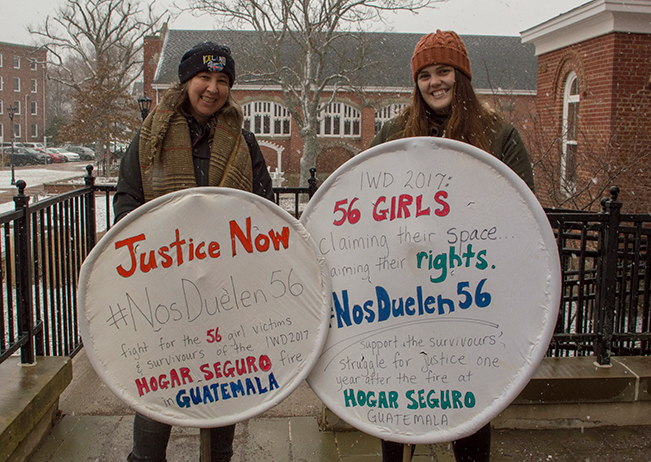 Justice Now
#NosDuelen56
fight for the 56 girl victims
& survivours of the IWD2017
HOGAR SEGURO fire
in GUATEMALA
IWD 2017:
56 GIRLS
claiming their space...
claiming their rights.
#NosDuelen56
support the survivours'
struggle for justice one
year after the fire at
HOGAR SEGURO
GUATEMALA